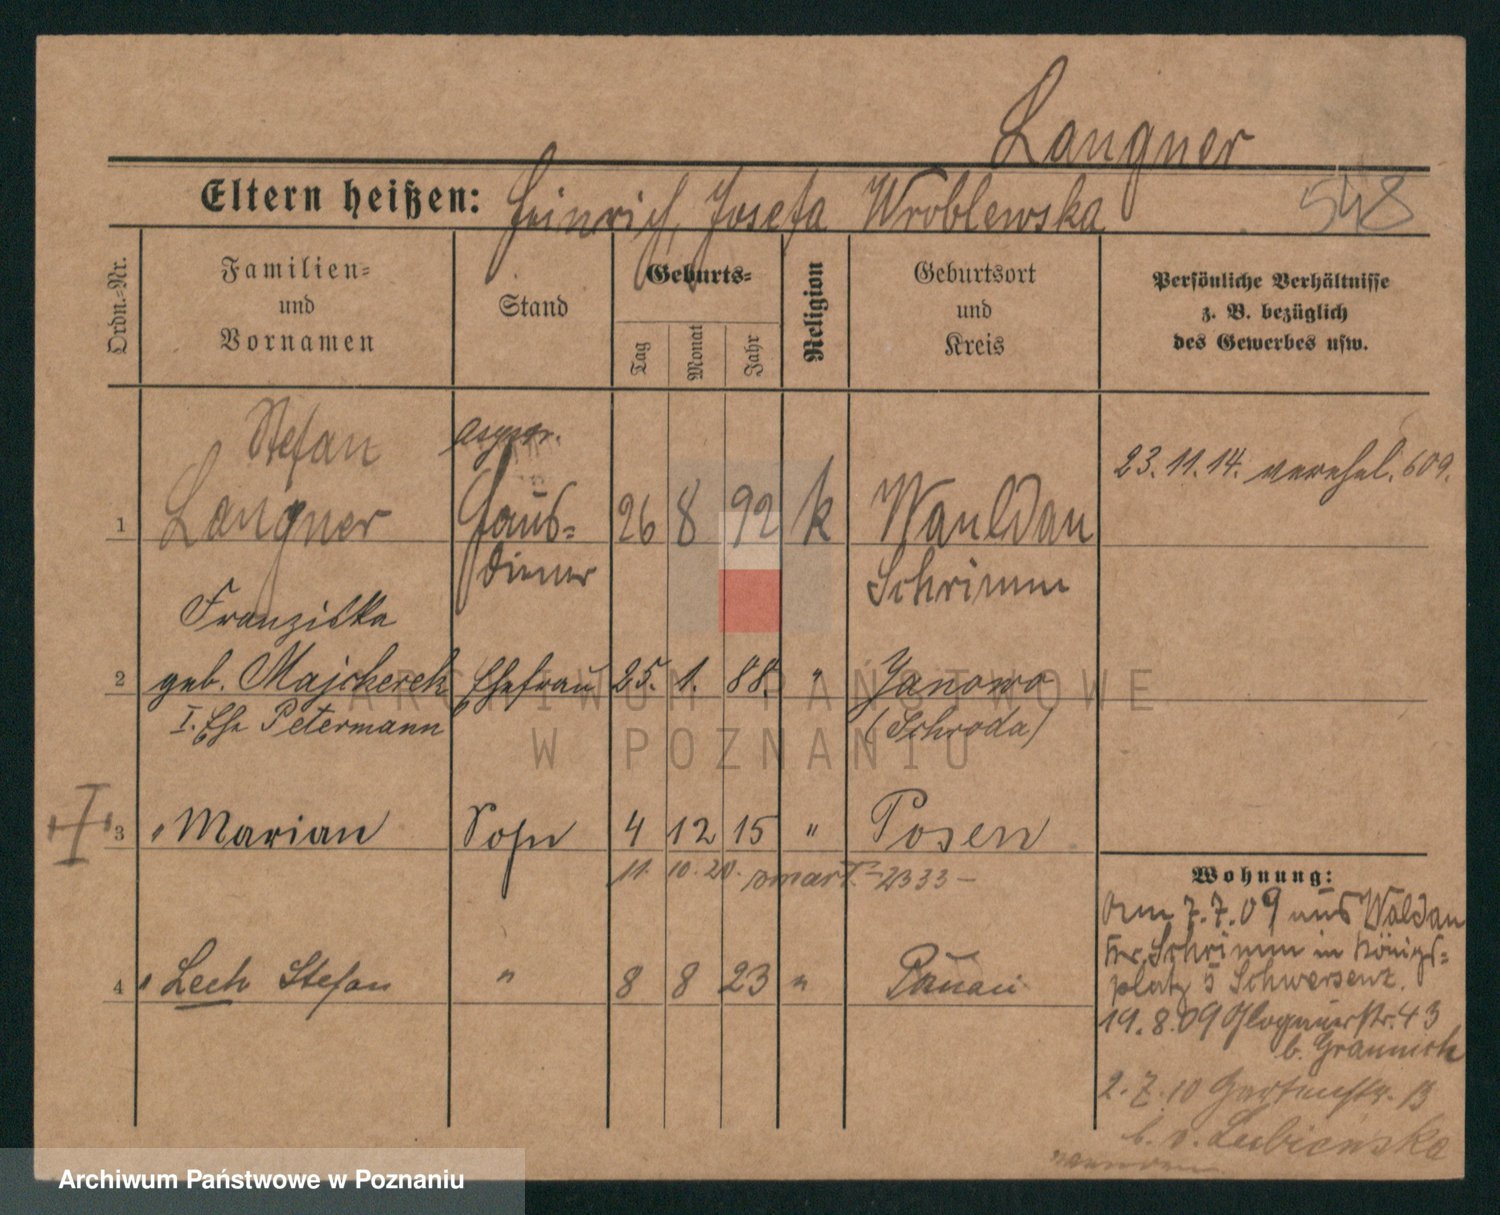 Langner
Eltern heißen: Heinrich, Josefa Wroblewska
548
Ordn.=Nr.
Familien=
und
Vornamen
Stand
Geburts=
Tag
Monat
Jahr
Religion
Geburtsort
und
Kreis
Persönliche Verhältnisse
z. B. bezüglich
des Gewerbes usw.
Stefan
23.11.14. verehel. 609.
1 Langner Haus= 26 8 92 k Wauldau
diener Schrimm
Franziska
2 geb. Majcherek Ehefrau 25. 1. 88. " Janowo
I. Ehe Petermann (Schroda)
3 " Marian Sohn 4 12 15 " Posen
11. 10. 20. 2333 –
4 " Lech Stefan " 8 8 23 "
Wohnung:
Am 7.7.09 aus Waldau
Kr. Schrimm in Königs=
platz 5 Schwersenz.
19.8.09 Glogauerstr. 43
b.
2.7.10 Gartenstr. 13
b. v. Lubienska
wenden
ARCHIWUM PAŃSTWOWE
W POZNANIU
Archiwum Państwowe w Poznaniu